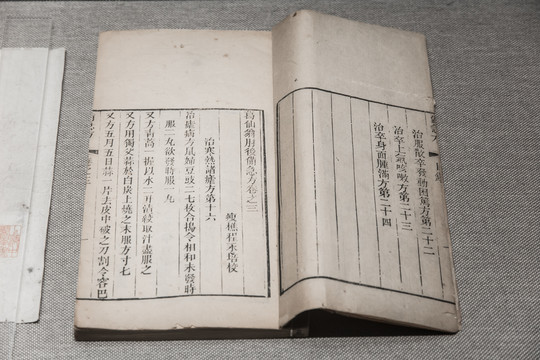 治服散卒發動困篤方第二十二
治卒上氣咳嗽方第二十三
治卒身面腫滿方第二十四
葛仙翁肘後備急方卷之三
治寒熱諸瘧方第十六
治瘧病方鼠婦豆豉二七枚合搗令相和未發時
服二丸欲發時服一丸
又方青蒿一握以水二升漬絞取汁盡服之
又方用獨父蒜於白炭上燒之末服方寸七
又方五月五日蒜一片去皮中破之刀割令容巴